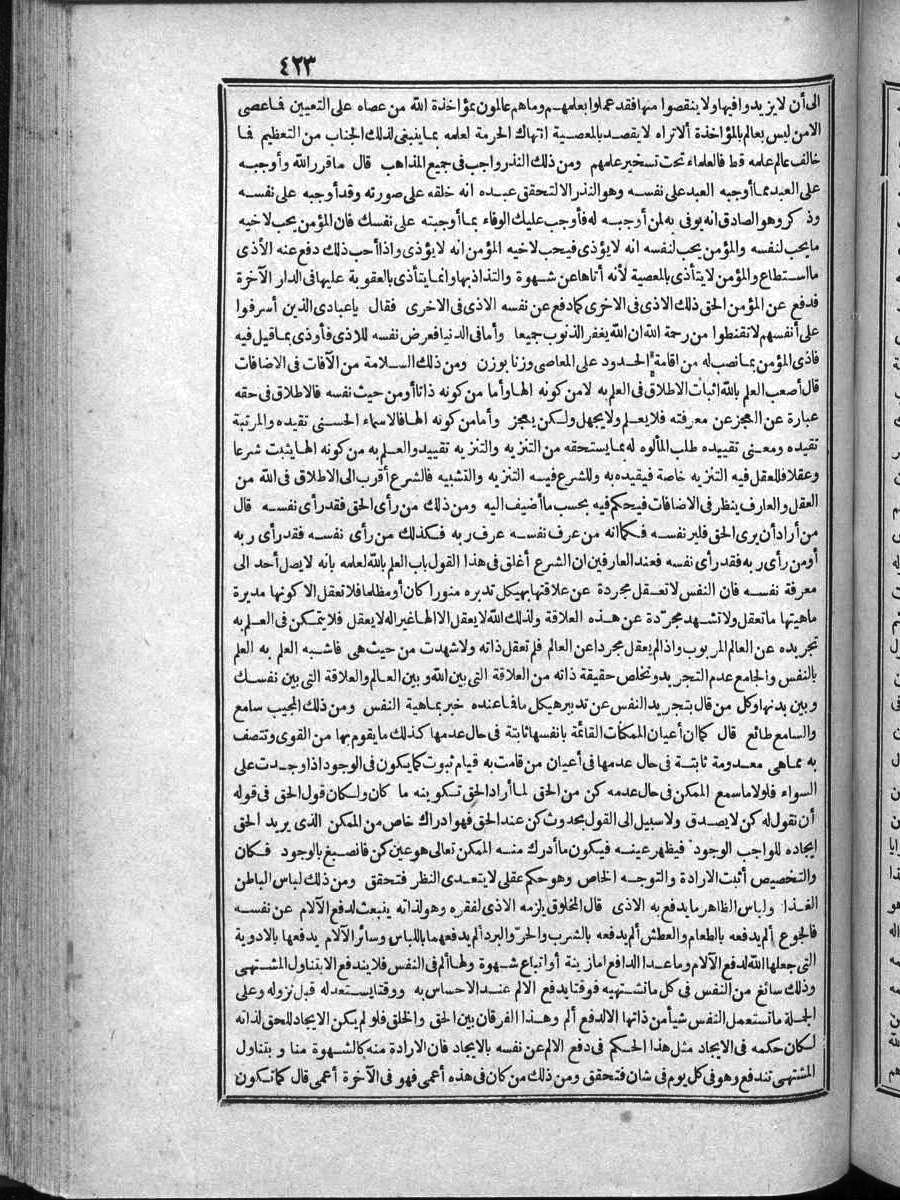 ٤٢٣
الى أن لا يزيدوا فيها ولا ينقصوا منها فقد عملوا بعلمهم وما هم عالمون بمؤاخذة الله من عصاه على التعيين فما عصى
الامن ليس بعالم بالمؤاخذة ألا تراه لا يقصد بالمعصية انتهاك الحرمة لعلمه بما ينبغى لذلك الجناب من التعظيم فما
خالف عالم علمه قط فالعلماء تحت تسخير علمهم ومن ذلك النذر واجب فى جميع المذاهب قال ما قرر الله وأوجبه
على العبد مما أوجبه العبد على نفسه وهو النذر الا لتحقق عبده انه خلقه على صورته وقد أوجبه على نفسه
وذكر وهو الصادق انه يوفى به لمن أوجبه له فأوجب عليك الوفاء بما أوجبته على نفسك فان المؤمن يحب لاخيه
ما يحب لنفسه والمؤمن يحب لنفسه انه لا يؤذى فيحب لاخيه المؤمن انه لا يؤذى واذا أحب ذلك دفع عنه الأذى
ما استطاع والمؤمن لا يتأذى بالمعصية لأنه أتاها عن شهوة والتذاذ بها وانما يتأذى بالعقوبة عليها فى الدار الآخرة
فدفع عن المؤمن الحق ذلك الاذى فى الاخرى كما دفع عن نفسه الاذى فى الاخرى فقال يا عبادى الذين أسرفوا
على أنفسهم لا تقنطوا من رحة الله ان الله يغفر الذنوب جميعا وأما فى الدنيا فعرض نفسه للاذى فأوذى بما قيل فيه
فاذى المؤمن بما نصب له من اقامة الحدود على المعاصى وزنا بوزن ومن ذلك السلامة من الآفات فى الاضافات
قال أصعب العلم بالله اثبات الاطلاق فى العلم به لا من كونه الها وأما من كونه ذاتا أو من حيث نفسه فالاطلاق فى حقه
عبارة عن العجز عن معرفته فلا يعلم ولا يجهل ولكن يعجز وأما من كونه الها فالاسماء الحسنى تقيده والمرتبة
تقيده ومعنى تقييده طلب المألوه له بما يستحقه من التنزيه والتنزيه تقييد والعلم به من كونه الها يثبت شرعا
وعقلا فللعقل فيه التنزيه خاصة فيقيده به وللشرع فيه التنزيه والتشبيه فالشرع أقرب الى الاطلاق فى الله من
العقل والعارف ينظر فى الاضافات فيحكم فيه بحسب ما أضيف اليه ومن ذلك من رأى الحق فقد رأى نفسه قال
من أراد أن يرى الحق فلير نفسه فكما انه من عرف نفسه عرف ربه فكذلك من رأى نفسه فقد رأى ربه
أو من رأى ربه فقد رأى نفسه فعند العارفين ان الشرع أغلق فى هذا القول باب العلم بالله لعلمه بانه لا يصل أحد الى
معرفة نفسه فان النفس لا تعقل مجردة عن علاقتها بهيكل تدبره منورا كان أو مظلما فلا تعقل الا كونها مديرة
ماهيتها ما تعقل ولا تشهد مجردة عن هذه العلاقة ولذلك الله لا يعقل الا الها غير اله لا يعقل فلا يتمكن فى العلم به
تجريده عن العالم المربوب واذا لم يعقل مجردا عن العالم فلم تعقل ذاته ولا شهدت من حيث هى فاشبه العلم به العلم
بالنفس والجامع عدم التجريد وتخلص حقيقة ذاته من العلاقة التى بين الله وبين العالم والعلاقة التى بين نفسك
وبين بدنها وكل من قال بتجريد النفس عن تدبير هيكل ما فما عنده خبر بماهية النفس ومن ذلك المجيب سامع
والسامع طائع قال كما ان أعيان الممكنات القائمة بانفسها ثابتة فى حال عدمها كذلك ما يقوم بها من القوى وتتصف
به مما هى معدومة ثابتة فى حال عدمها فى أعيان من قامت به قيام ثبوت كما يكون فى الوجود اذا وجدت على
السواء فلولا ما سمع الممكن فى حال عدمه كن من الحق لما أراد الحق تكوينه ما كان ولكان قول الحق فى قوله
أن نقول له كن لا يصدق ولا سبيل الى القول بحدوث كن عند الحق فهو ادراك خاص من الممكن الذى يريد الحق
ايجاده للواجب الوجود فيظهر عينه فيكون ما أدرك منه الممكن تعالى هو عين كن فانصبغ بالوجود فكان
والتخصيص أثبت الارادة والتوجه الخاص وهو حكم عقلى لا يتعدى النظر فتحقق ومن ذلك لباس الباطن
الغذا ولباس الظاهر ما يدفع به الاذى قال المخلوق يلزمه الاذى لفقره وهو لذاته ينبعث لدفع الآلام عن نفسه
فالجوع ألم يدفعه بالطعام والعطش ألم يدفعه بالشرب والحر والبرد ألم يدفعهما باللباس وسائر الآلام يدفعها بالادوية
التى جعلها الله لدفع الآلام وما عدا الدافع اما زينة أو اتباع شهوة ولها ألم فى النفس فلا يندفع الا بتناول المشتهى
وذلك سائغ من النفس فى كل ما تشتهيه فوقتا يدفع الالم عند الاحساس به ووقتا يستعد له قبل نزوله وعلى
الجلة ما تستعمل النفس شيأ من ذاتها الا لدفع ألم وهذا الفرقان بين الحق والخلق فلو لم يكن الايجاد للحق لذاته
لكان حكمه فى الايجاد مثل هذا الحكم فى دفع الالم عن نفسه بالايجاد فان الارادة منه كالشهوة منا وبتناول
المشتهى تندفع وهو فى كل يوم فى شان فتحقق ومن ذلك من كان فى هذه أعمى فهو فى الآخرة أعمى قال كما تكون